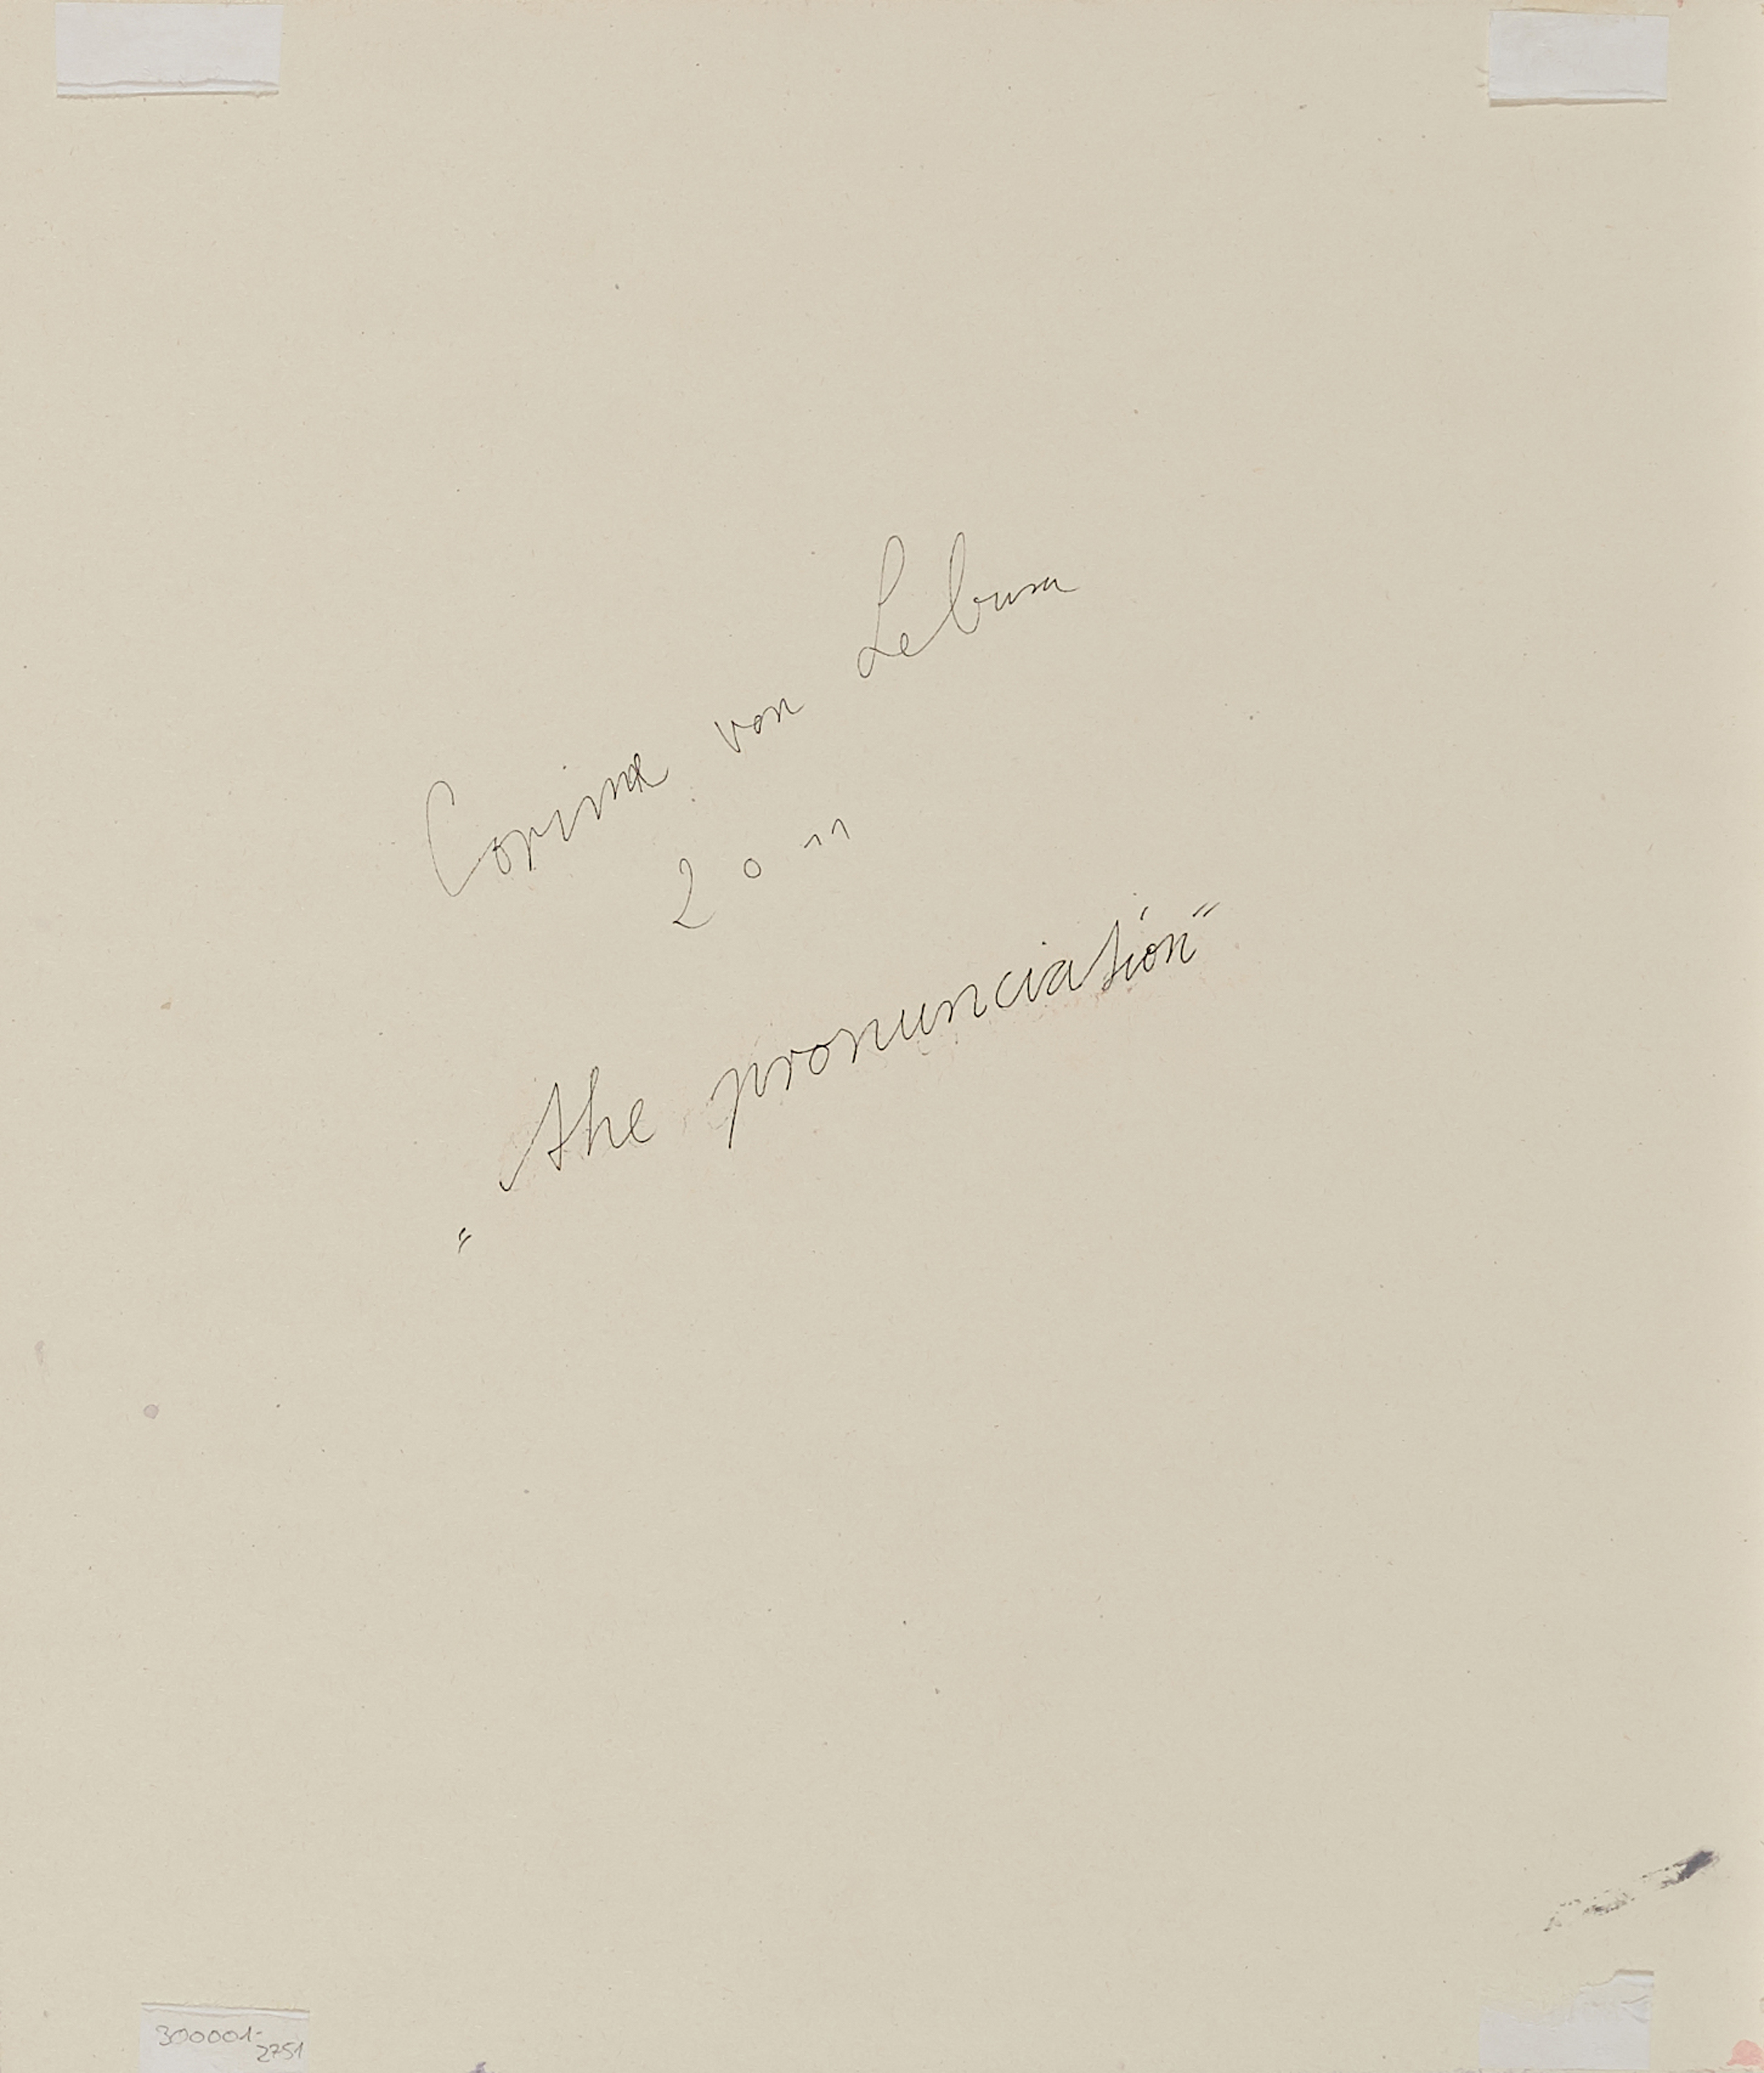 Corinna von Lebusa
2011
„the pronunciation"
300001-
2751